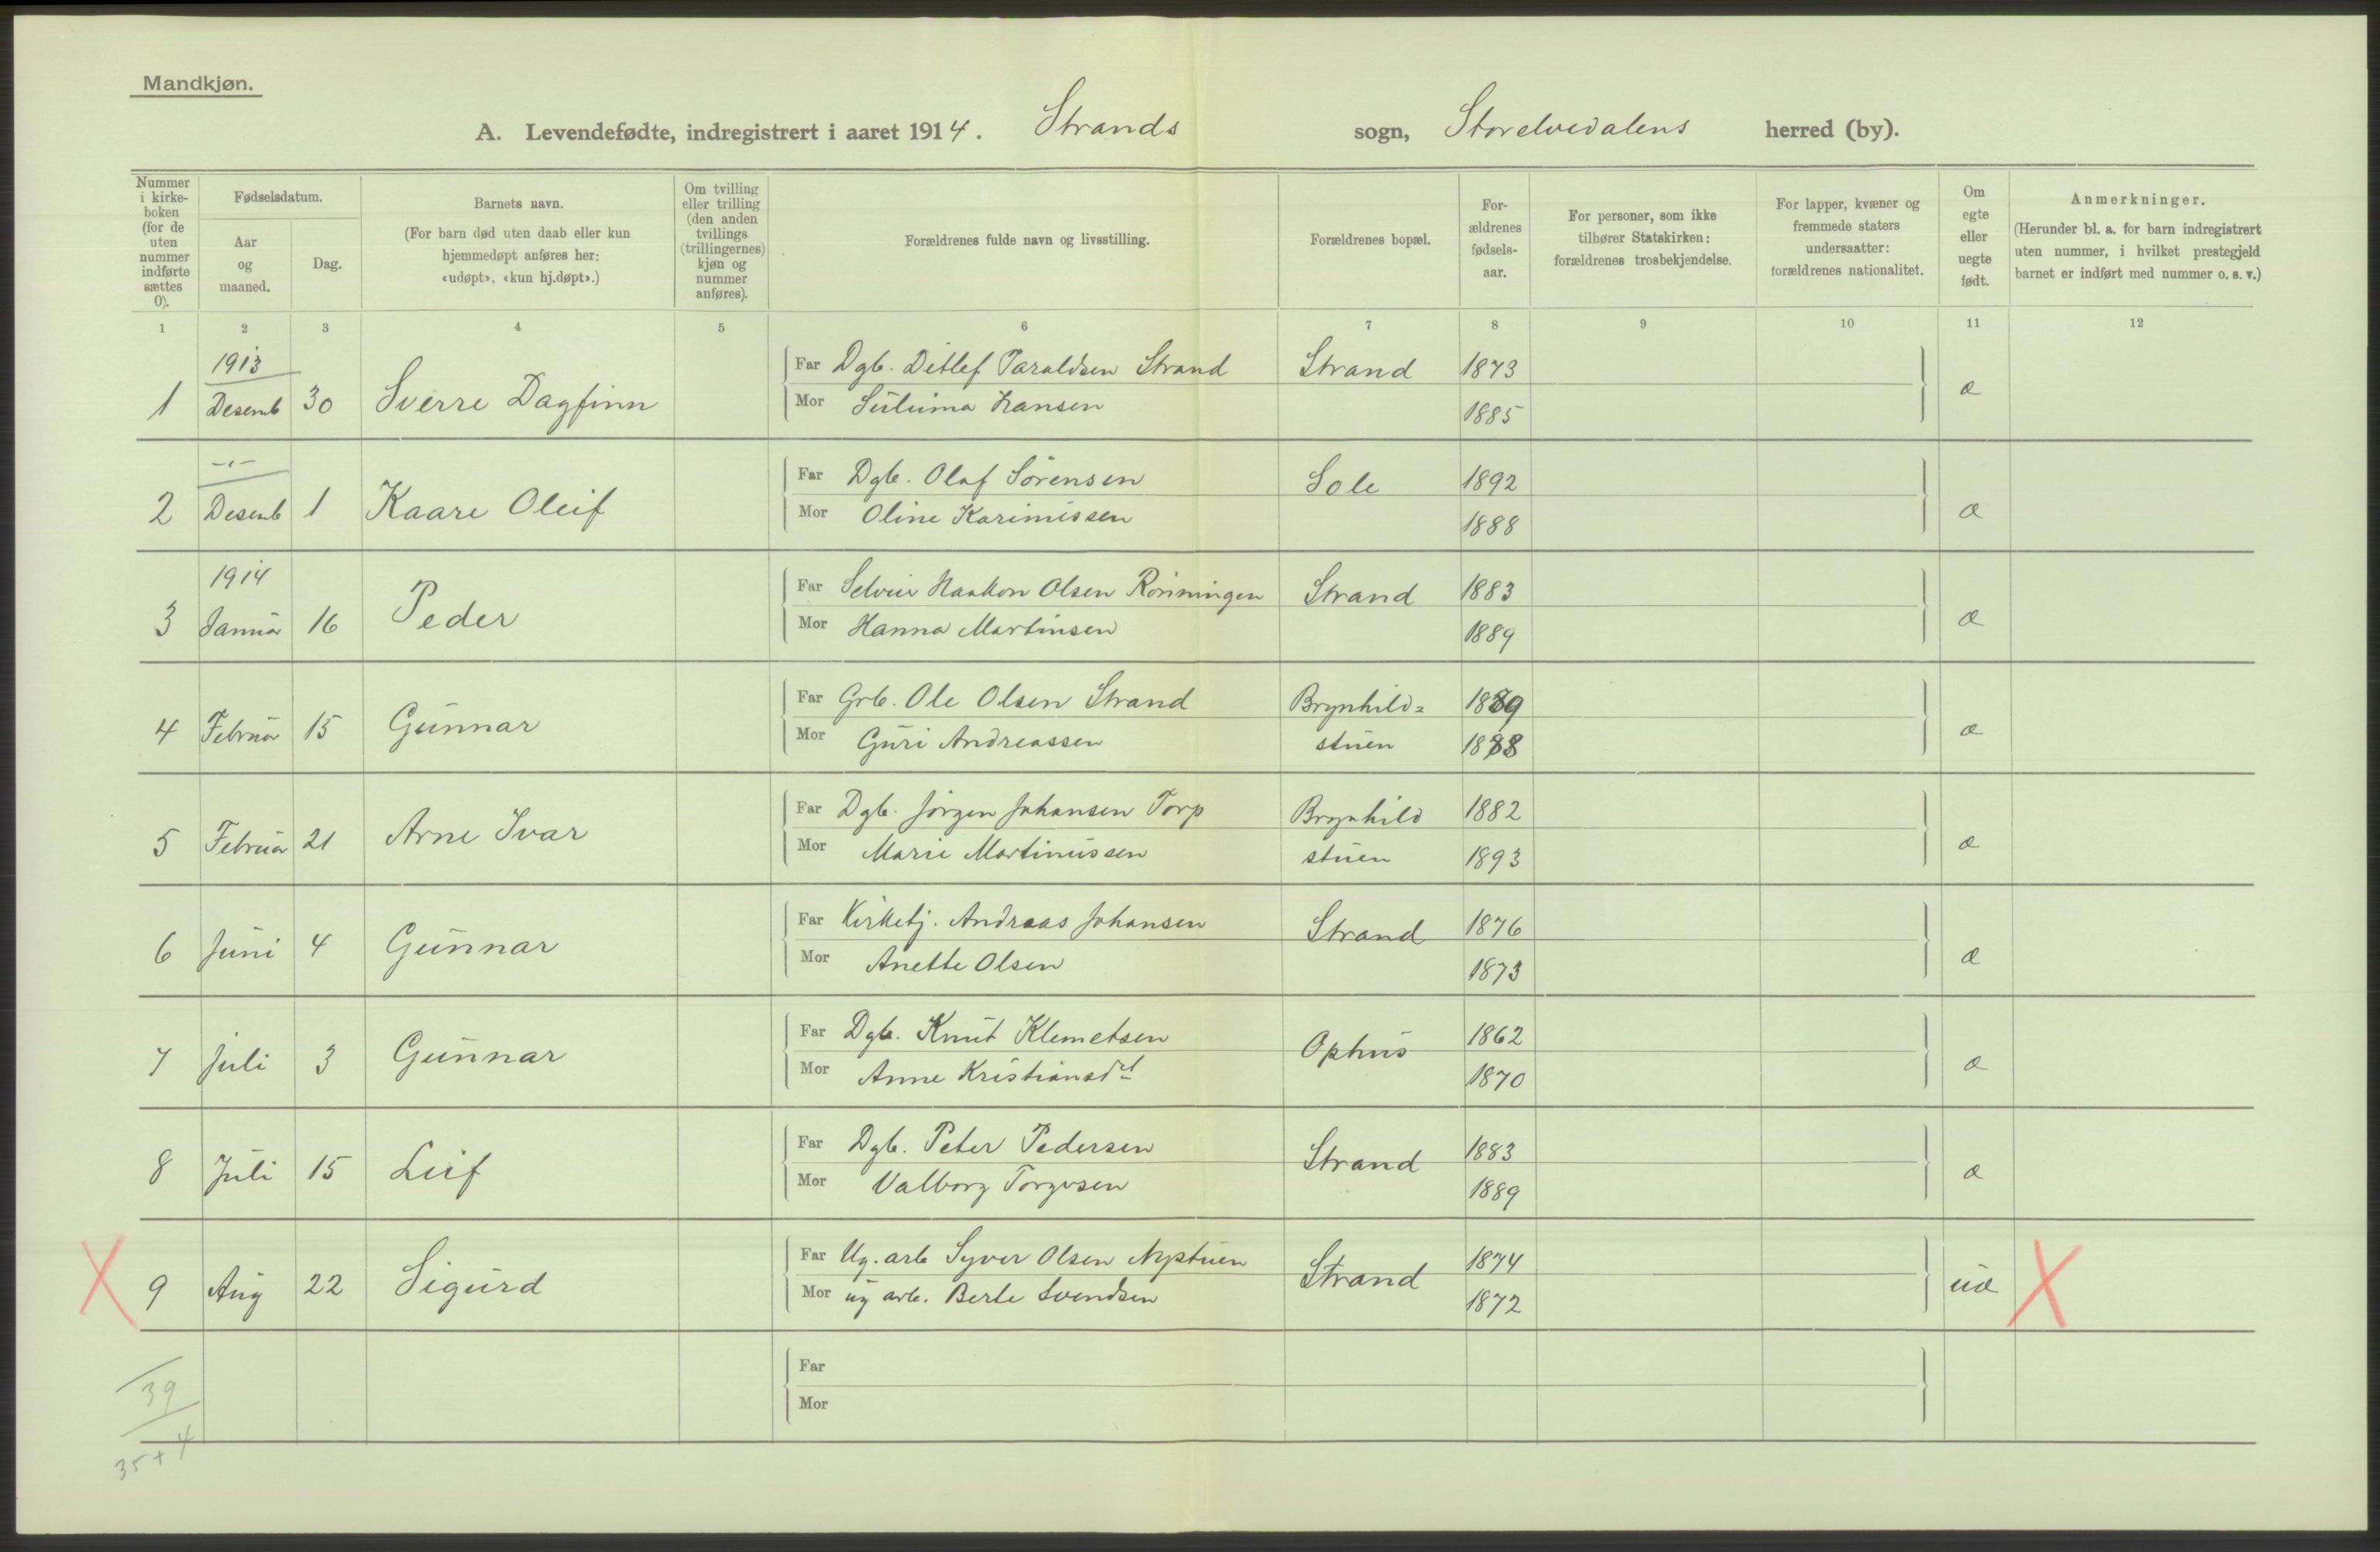 Mandkjøn.
A. Levendefødte, indregistrert i aaret 1914. Strands sogn, Storelvedalens herred (by).
Nummer i kirke-boken (for de uten nummer indførte sættes 0).
Fødselsdatum.
Aar og maaned.
Dag.
Barnets navn.
(For barn død uten daab eller kun hjemmedøpt anføres her: «udøpt», «kun hj.døpt».)
Om tvilling eller trilling (den anden tvillings (trillingernes) kjøn og nummer anføres).
Forældrenes fulde navn og livsstilling.
Forældrenes bopæl.
For-ældrenes fødsels-aar.
For personer, som ikke tilhører Statskirken: forældrenes trosbekjendelse.
For lapper, kvæner og fremmede staters undersaatter: forældrenes nationalitet.
Om egte eller uegte født.
Anmerkninger.
(Herunder bl. a. for barn indregistrert uten nummer, i hvilket prestegjeld barnet er indført med nummer o. s. v.)
1 2 3 4 5 6 7 8 9 10 11 12
1913
1 Desemb 30 Sverre Dagfinn Far Dgb. Ditlef Taraldsen Strand Strand 1873 æ
Mor Hansen 1885
-"-
2 Desemb 1 Kaare Oleif Far Dgb. Olaf Sørensen Sole 1892 æ
Mor Oline Karinussen 1888
1914
3 Januar 16 Peder Far Selveier Haakon Olsen Rønningen Strand 1883 æ
Mor Hanna Martinsen 1889
4 Februar 15 Gunnar Far Grb. Ole Olsen Strand Brynhild= æ
Mor Guri Andreassen stuen
5 Februar 21 Arne Ivar Far Dgb. Jørgen Johansen Torp Brynhild 1882 æ
Mor Marie Martinussen stuen 1893
6 Juni 4 Gunnar Far Kirketj. Andreas Johansen Strand 1876 æ
Mor Anette Olsen 1873
7 Juli 3 Gunnar Far Dgb. Knut Klemetsen Ophus 1862 æ
Mor Anne Kristiansdt 1870
8 Juli 15 Leif Far Dgb. Peter Pedersen Strand 1883 æ
Mor Valborg Torgersen 1889
X 9 Aug 22 Sigurd Far Ug. arb Syver Olsen Nystuen Strand 1874 uæ X
Mor ug arb. Berte Svendsen 1872
Far
39
Mor
35+4